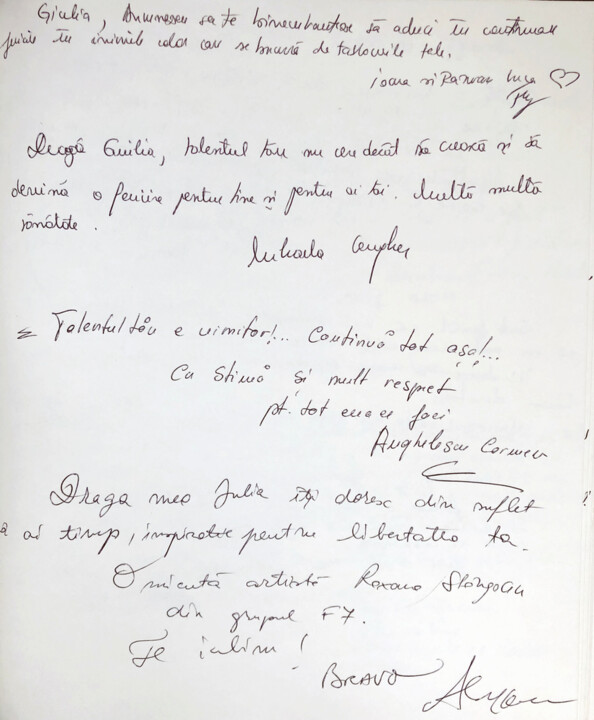 Giulia, Dumnezeu sa te binecuvanteze să aduci în continuare
în inimile celor care se bucură de tablourile tele.
ioana si Razvan Luca
Dragă Giulia, talentul tau nu cere decât să crească și să
devină o fericire pentru tine și pentru ai tai. Multă multă
sănătate.
Mihaela
Talentul tău e uimitor!... Continuă tot așa!...
Cu stimă și mult respect
pt. tot ceea ce faci
Anghelescu Carmen
Draga mea Julia îți doresc din suflet
a ai timp, inspirație pentru libertatea ta.
O micuță artistă Roxana
din grupul F7.
Te iubim!
BRAVO